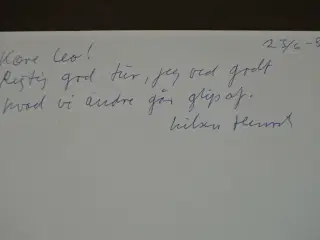 23/6-
Kære Leo!
Rigtig god tur, jeg ved godt
hvad vi andre går glip af.
hilsen